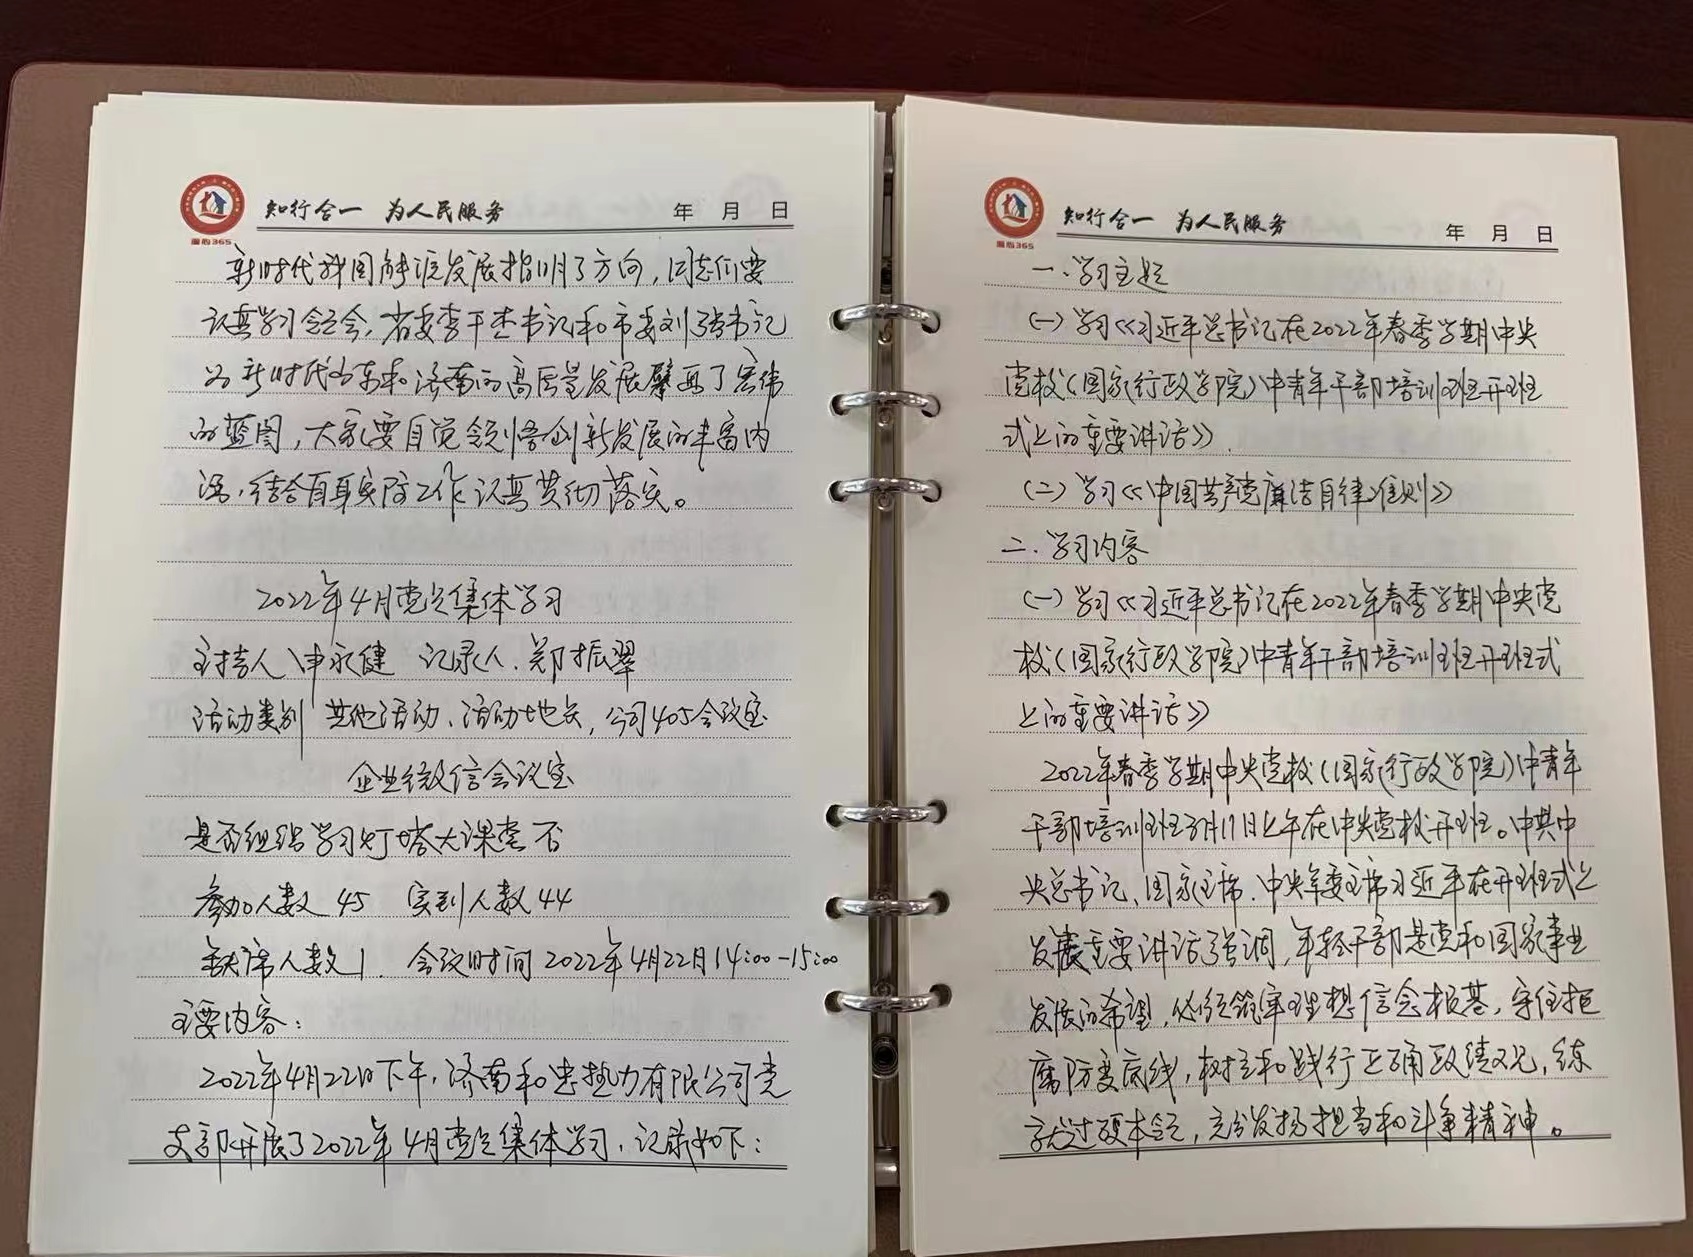 暖心365
知行合一 为人民服务 年 月 日
新时代我国能源发展指明了方向，同志们要
认真学习领会，省委李干杰书记和市委刘强书记
为新时代山东和济南的高质量发展擘画了宏伟
的蓝图，大家要自觉领悟创新发展的丰富内
涵，结合自身实际工作认真贯彻落实。
2022年4月党员集体学习
主持人 申永健 记录人、郑振翠
活动类别 其他活动、活动地点，公司405会议室
企业微信会议室
是否组织学习灯塔大课堂 否
参加人数 45 实到人数 44
缺席人数 1. 会议时间 2022年4月22日14:00-15:00
主要内容：
2022年4月22日下午，济南和忠热力有限公司党
支部开展了2022年4月党员集体学习，记录如下：
暖心365
知行合一 为人民服务 年 月 日
一、学习主题
(一) 学习《习近平总书记在2022年春季学期中央
党校(国家行政学院)中青年干部培训班开班
式上的重要讲话》.
(二) 学习《中国共产党廉洁自律准则》
二、学习内容
(一) 学习《习近平总书记在2022年春季学期中央党
校(国家行政学院)中青年干部培训班开班式
上的重要讲话》
2022年春季学期中央党校(国家行政学院)中青年
干部培训班3月1日上午在中央党校开班。中共中
央总书记、国家主席、中央军委主席习近平在开班式上
发展重要讲话强调，年轻干部是党和国家事业
发展的希望，必须筑牢理想信念根基，守住拒
腐防变底线，树立和践行正确政绩观，练
就过硬本领，充分发扬担当和斗争精神。